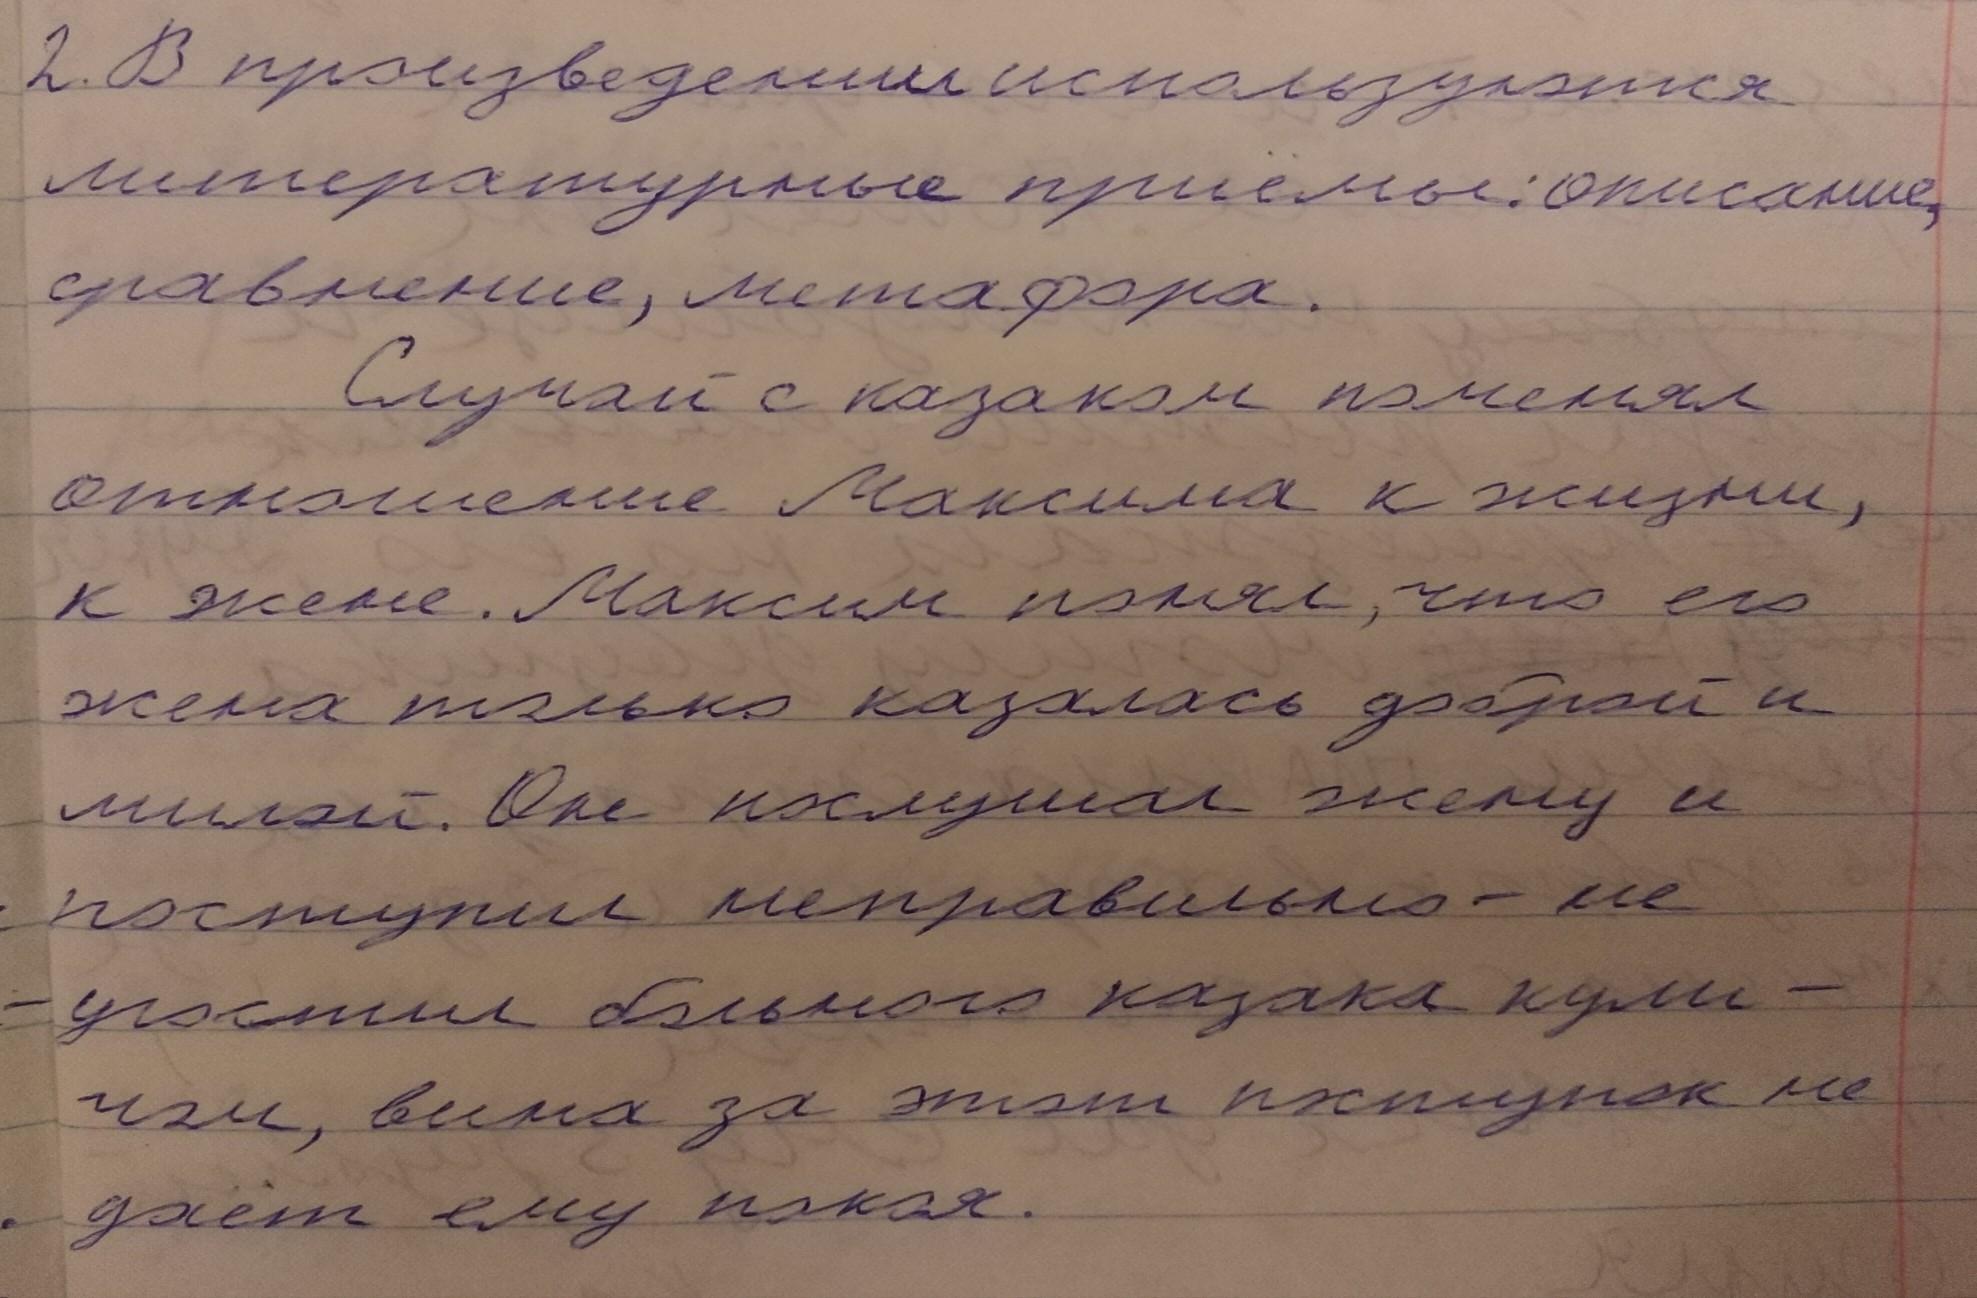 2. В произведении используются
литературные приёмы: описание,
сравнение, метафора.
Случай с казаком поменял
отношение Максима к жизни,
к жене. Максим понял, что его
жена только казалась доброй и
милой. Он послушал жену и
поступил неправильно - не
угостил больного казака кули-
чом, вина за этот поступок не
даёт ему покоя.